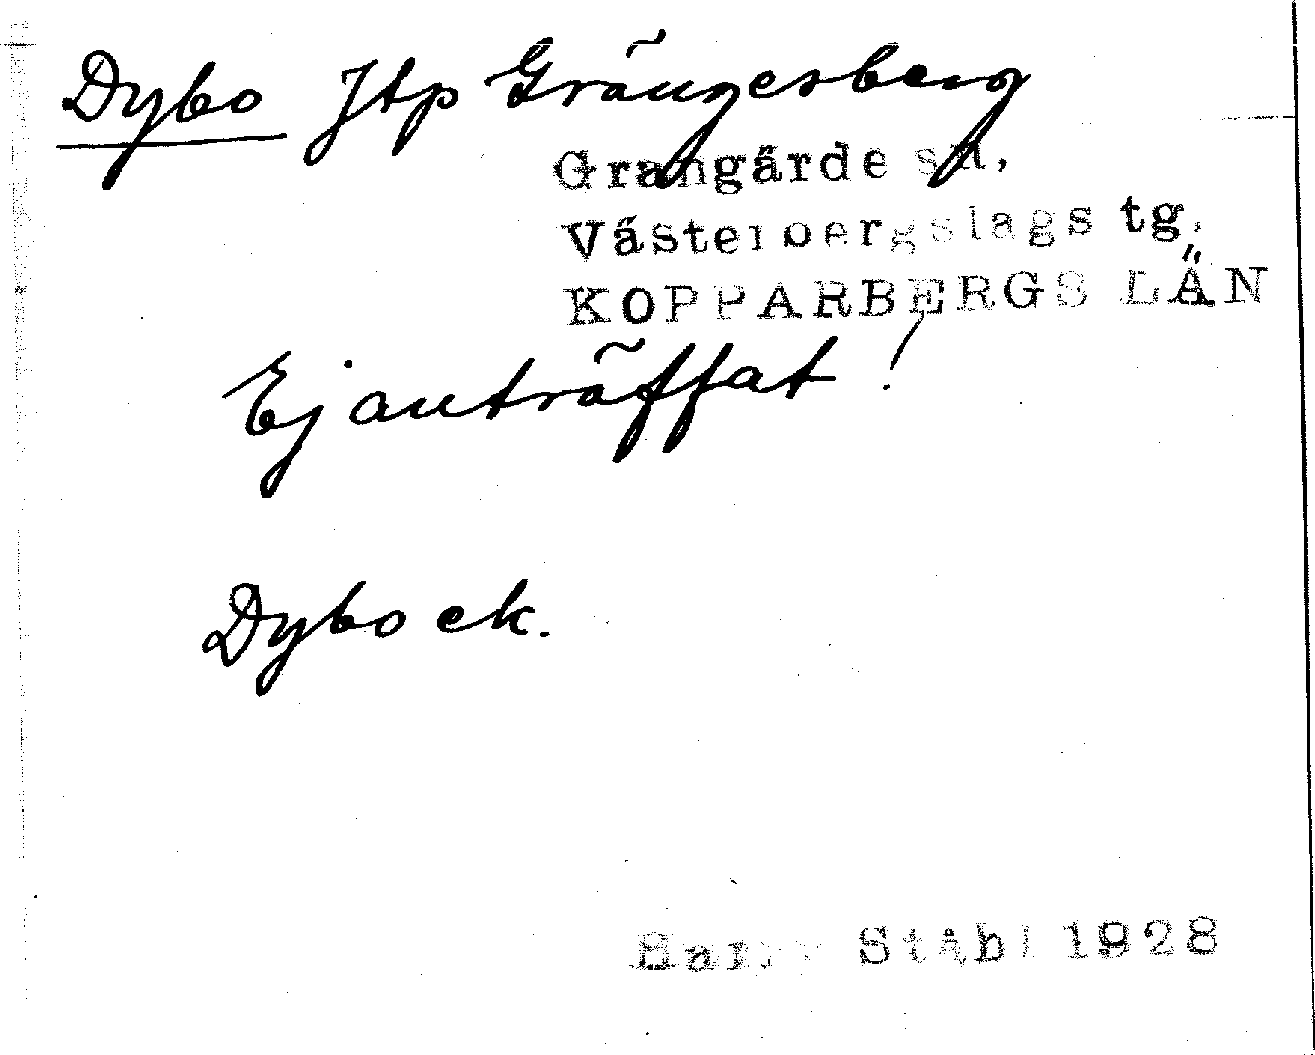 Dybo Jtp Grängesberg
Grangärde sn,
Västerbergslags tg.
KOPPARBERGS LÄN
Ej anträffat!
Dybo ek.
Harry Ståhl 1928